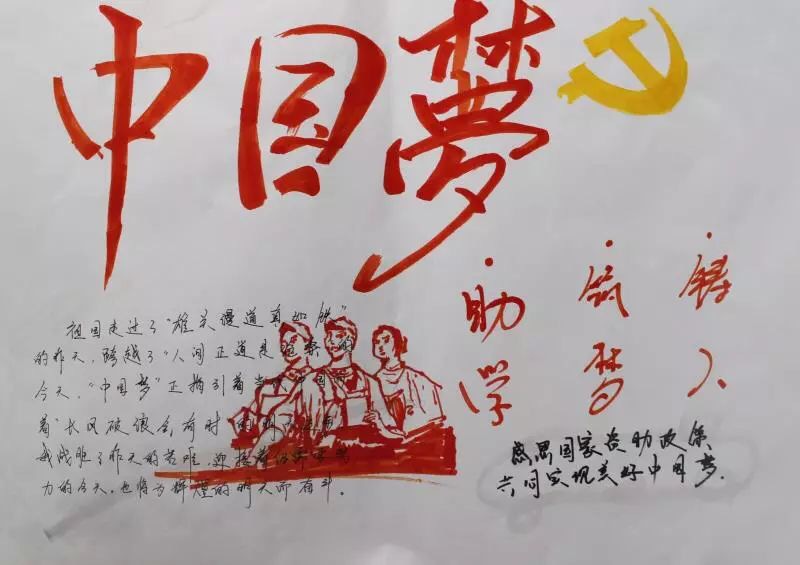 中国夢
祖国走过了“雄关漫道真如铁”
的昨天，跨越了“人间正道是沧桑”的
今天，“中国梦”正指引着当代中国
着“长风破浪会有时”的明天
我战胜了昨天的苦难，迎接着仍需努
力的今天，也将为辉煌的明天而奋斗。
·助学
·筑梦
·铸人
感恩国家资助政策
共同实现美好中国梦.